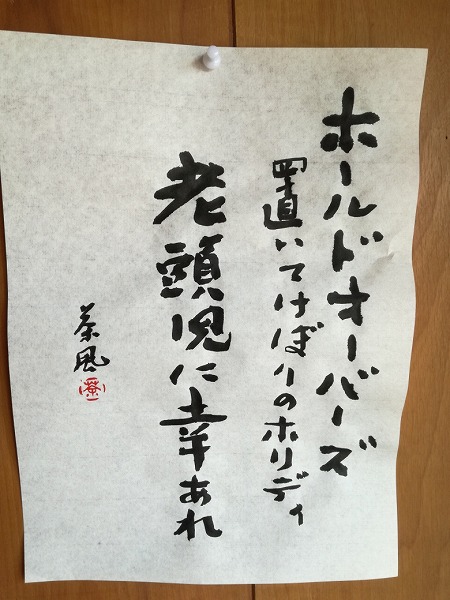 ホールドオーバーズ
置いてけぼりのホリディ
老頭児に幸あれ
茶風